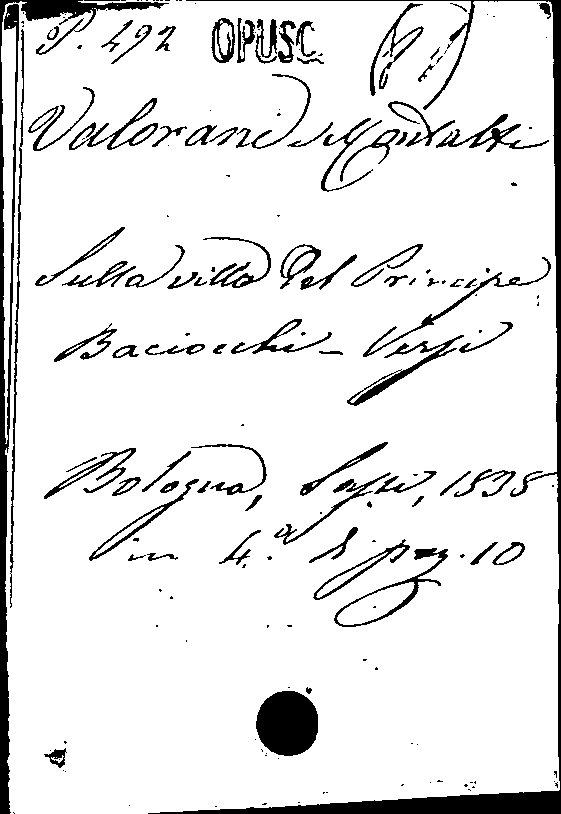 P. 492 OPUSC.
Valorani Montalti
Sulla villa del Principe
Baciocchi - Versi
Bologna, Sassi, 1838
in 4.° di pag. 10